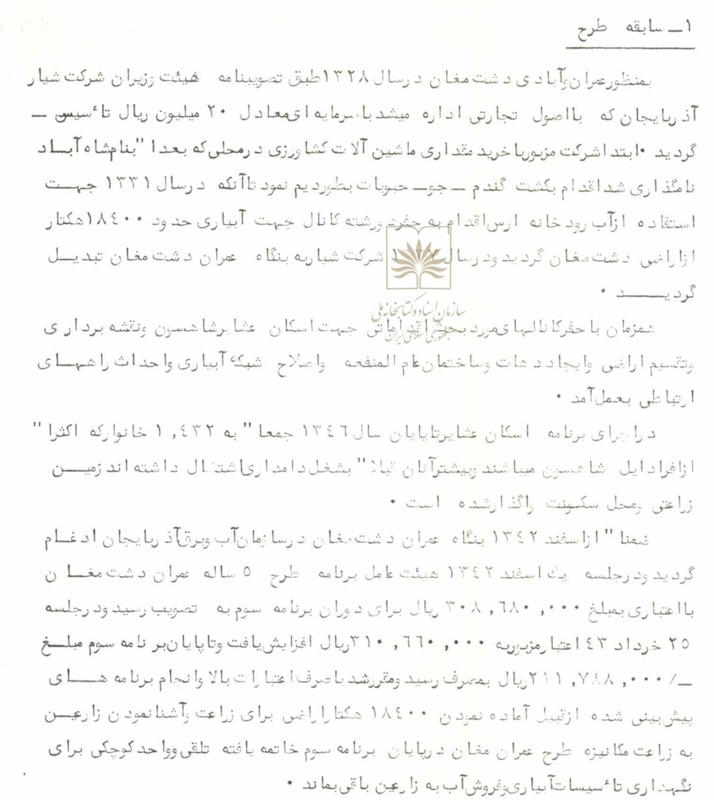 ۱ــ سابقه طرح
بمنظور عمران وآبادی دشت مغان درسال ۱۳۲۸ طبق تصویبنامه هیئت وزیران شرکت شیار
آذربایجان که بااصول تجارتی اداره میشد باسرمایه ای معادل ۲۰ میلیون ریال تاٴسیس ــ
گردید ۰ ابتدا شرکت مزبور با خرید مقداری ماشین آلات کشاورزی درمحلی که بعدا" بنام شاه آباد
نامگذاری شد اقدام بکشت گندم ــ جوــ حبوبات بطور دیم نمود تاآنکه درسال ۱۳۳۱ جهت
استفاده ازآب رودخانه ارس اقدام به حفر دورشته کانال جهت آبیاری حدود ۱۸۴۰۰ هکتار
ازاراضی دشت مغان گردید ودرسال شرکت شیار به بنگاه عمران دشت مغان تبدیل
گردیــد ۰
سازمان اسناد و کتابخانه ملی
جمهوری اسلامی ایران
همزمان با حفرکانالهای مورد بحث اقداماتی جهت اسکان عشایر شاهسون ونقشه برداری و
وتقسیم اراضی وایجاد دهات وساختمان عام المنفعه واصلاح شبکه آبیاری واحداث راههای
ارتباطی بعمل آمد ۰
دراجرای برنامه اسکان عشایر تاپایان سال ۱۳۴۶ جمعا" به ۱,۴۳۲ خانوار که اکثرا"
ازافراد ایل شاهسون میباشند وبیشتر آنان قبلا" بشغل دامداری اشتغال داشته اند زمین
زراعتی ومحل سکونت واگذار شده است ۰
ضمنا" ازاسفند ۱۳۴۲ بنگاه عمران دشت مغان درسازمان آب وبرق آذربایجان ادغام
گردید ودرجلسه یک اسفند ۱۳۴۲ هیئت عامل برنامه طرح ۵ ساله عمران دشت مغان
بااعتباری بمبلغ ۳۰۸,۶۸۰,۰۰۰ ریال برای دوران برنامه سوم به تصویب رسید ودرجلسه
۲۵ خرداد ۴۳ اعتبار مزبوربه ۳۱۰,۶۶۰,۰۰۰ ریال افزایش یافت وتاپایان برنامه سوم مبلغ
ــ/۲۱۱,۷۸۸,۰۰۰ ریال بمصرف رسید ومقررشد باصرف اعتبارات بالا وانجام برنامه های
پیش بینی شده ازقبیل آماده نمودن ۱۸۴۰۰ هکتار اراضی برای زراعت وآشنا نمودن زارعین
به زراعت مکانیزه طرح عمران مغان درپایان برنامه سوم خاتمه یافته تلقی وواحد کوچکی برای
نگهداری تاٴسیسات آبیاری وفروش آب به زارعین باقی بماند ۰